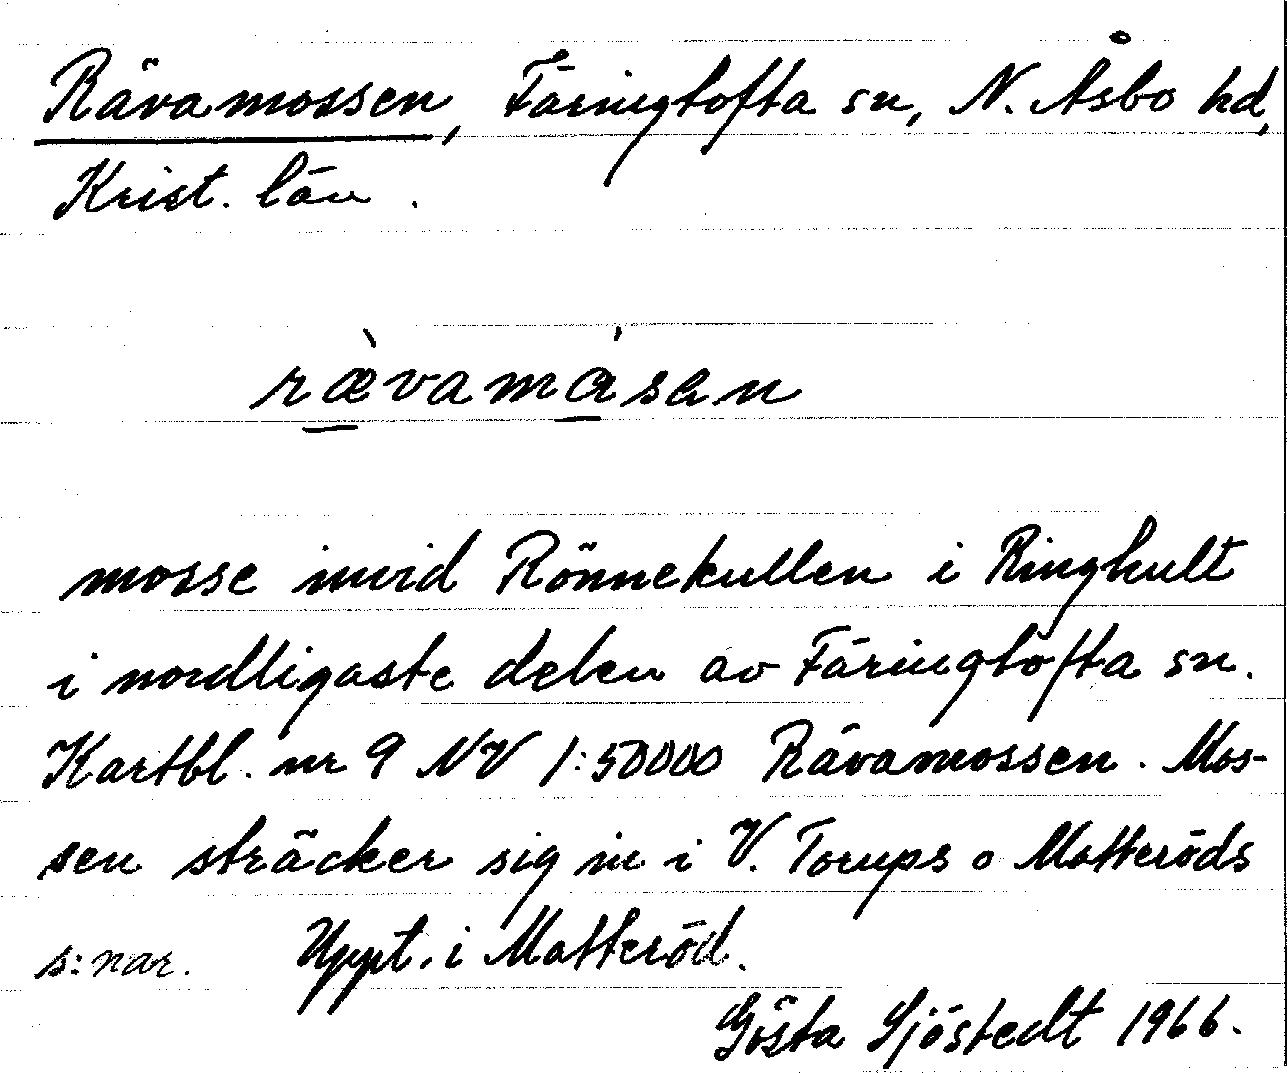 Rävamossen, Färingtofta sn, N. Åsbo hd,
Krist. län.
ræ̀vamåsen
mosse invid Rönnekullen i Ringhult
i nordligaste delen av Färingtofta sn.
Kartbl. nr 9 NV 1:50000 Rävamossen. Mos-
sen sträcker sig in i V. Torups o Matteröds
s:nar. Uppt. i Matteröd.
Gösta Sjöstedt 1966.